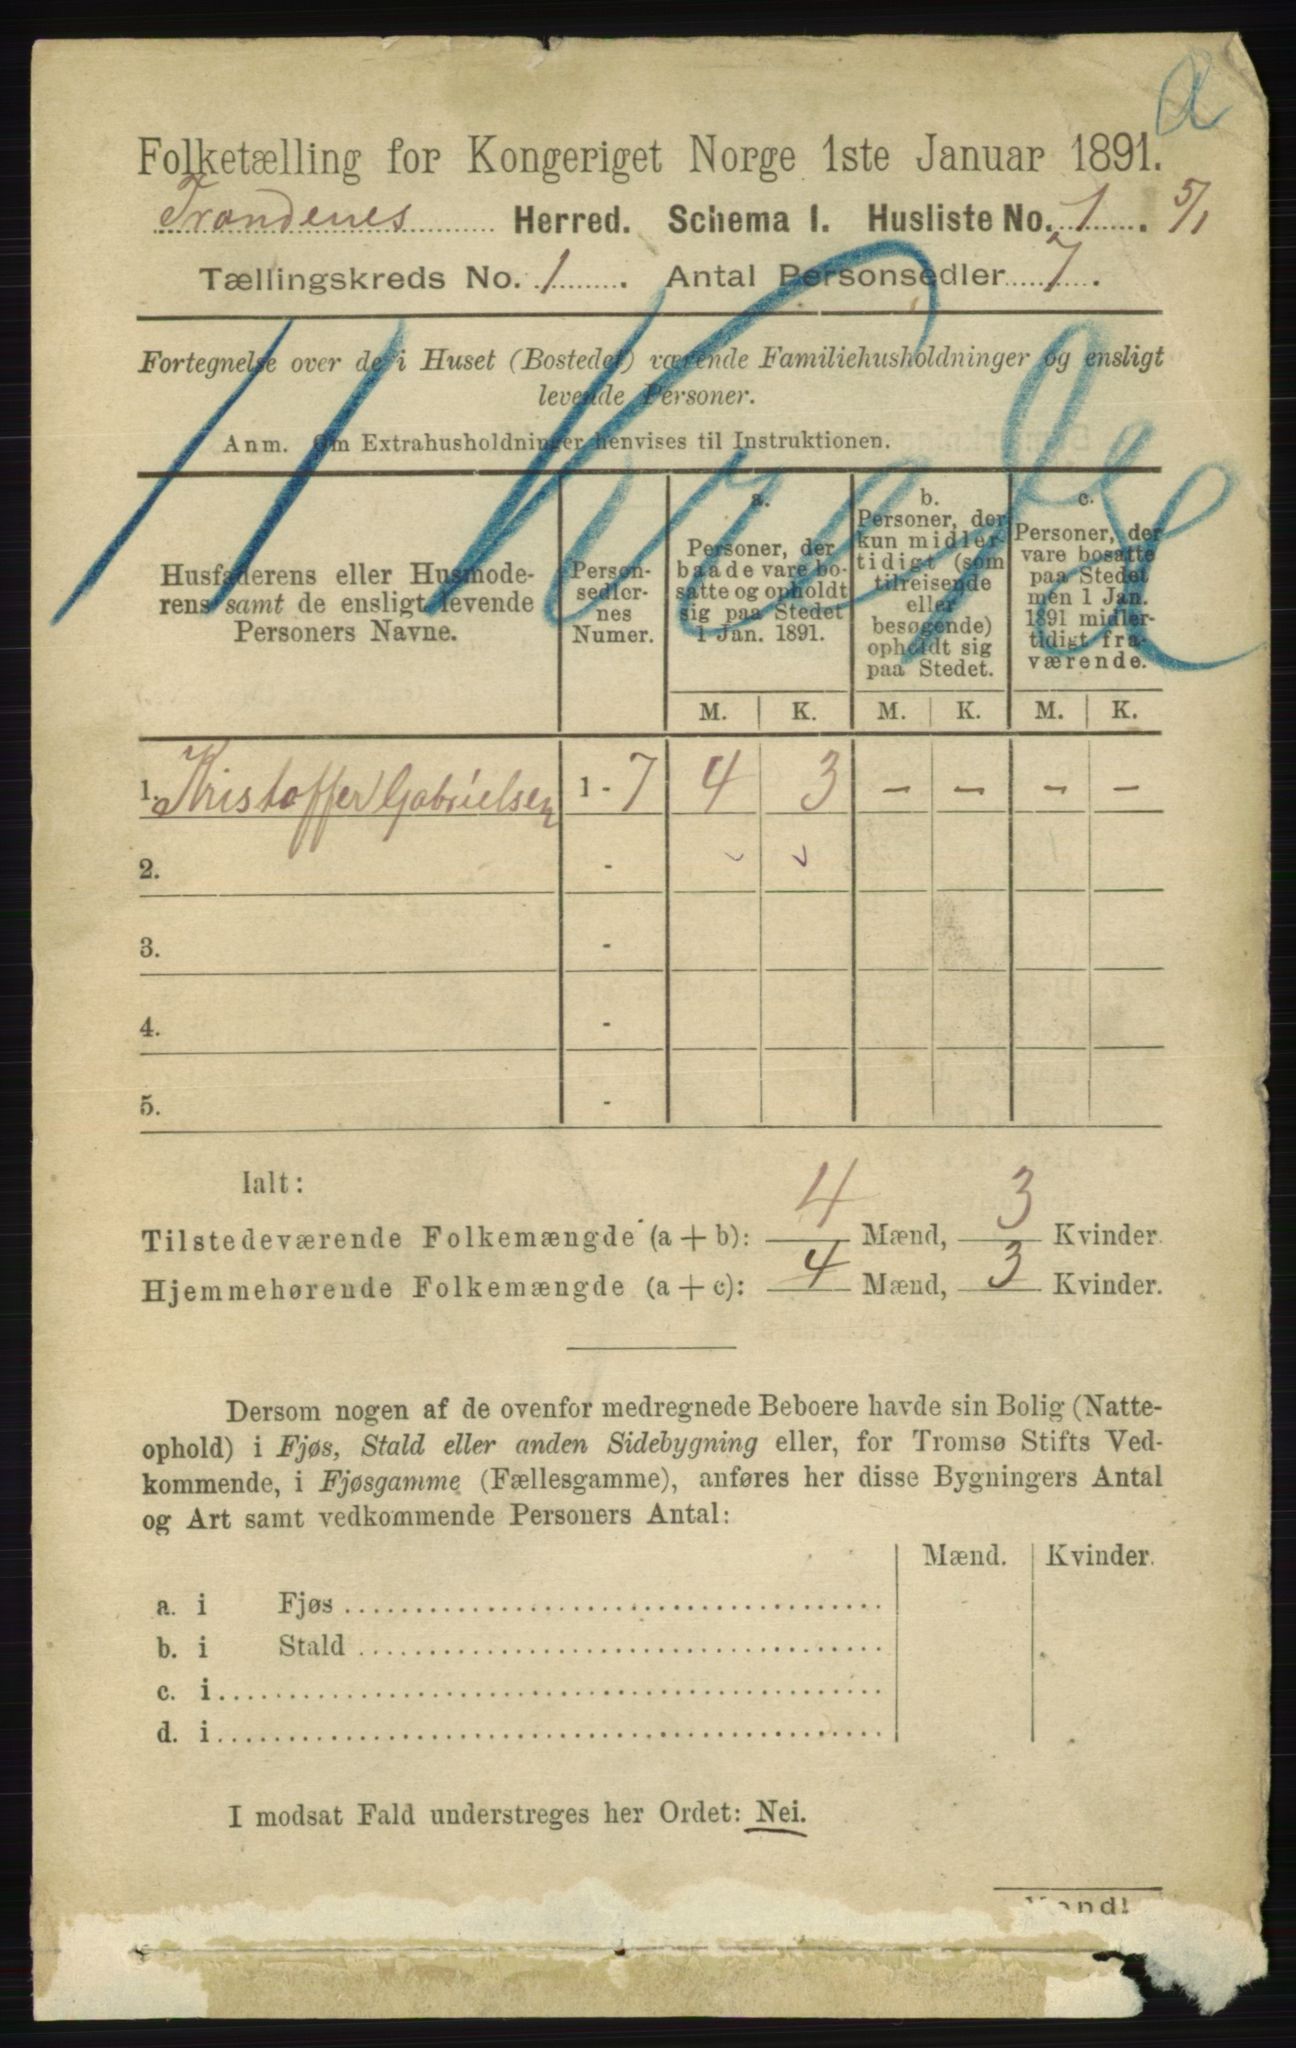 Folketælling for Kongeriget Norge 1ste Januar 1891.
Trondenes Herred. Schema I. Husliste No. 1. 5/1
Tællingskreds No. 1. Antal Personsedler 7.
Fortegnelse over de i Huset (Bostedet) værende Familiehusholdninger og ensligt
levende Personer.
Anm. Om Extrahusholdninger henvises til Instruktionen.
Husfaderens eller Husmode-
rens samt de ensligt levende
Personers Navne.
Person-
sedler-
nes
Numer.
a.
Personer, der
baade vare bo-
satte og opholdt
sig paa Stedet
1 Jan. 1891.
b.
Personer, der
kun midler-
tidigt (som
tilreisende
eller
besøgende)
opholdt sig
paa Stedet.
c.
Personer, der
vare bosatte
paa Stedet
men 1 Jan.
1891 midler-
tidigt fra-
værende.
M. K. M. K. M. K.
1. Kristoffer Gabrielsen 1 - 7 4 3 - - - -
2. -
3. -
4. -
5. -
Ialt:
Tilstedeværende Folkemængde (a + b): 4 Mænd, 3 Kvinder.
Hjemmehørende Folkemængde (a + c): 4 Mænd, 3 Kvinder.
Dersom nogen af de ovenfor medregnede Beboere havde sin Bolig (Natte-
ophold) i Fjøs, Stald eller anden Sidebygning eller, for Tromsø Stifts Ved-
kommende, i Fjøsgamme (Fællesgamme), anføres her disse Bygningers Antal
og Art samt vedkommende Personers Antal:
Mænd. Kvinder.
a. i Fjøs
b. i Stald
c. i
d. i
I modsat Fald understreges her Ordet: Nei.
Vend!